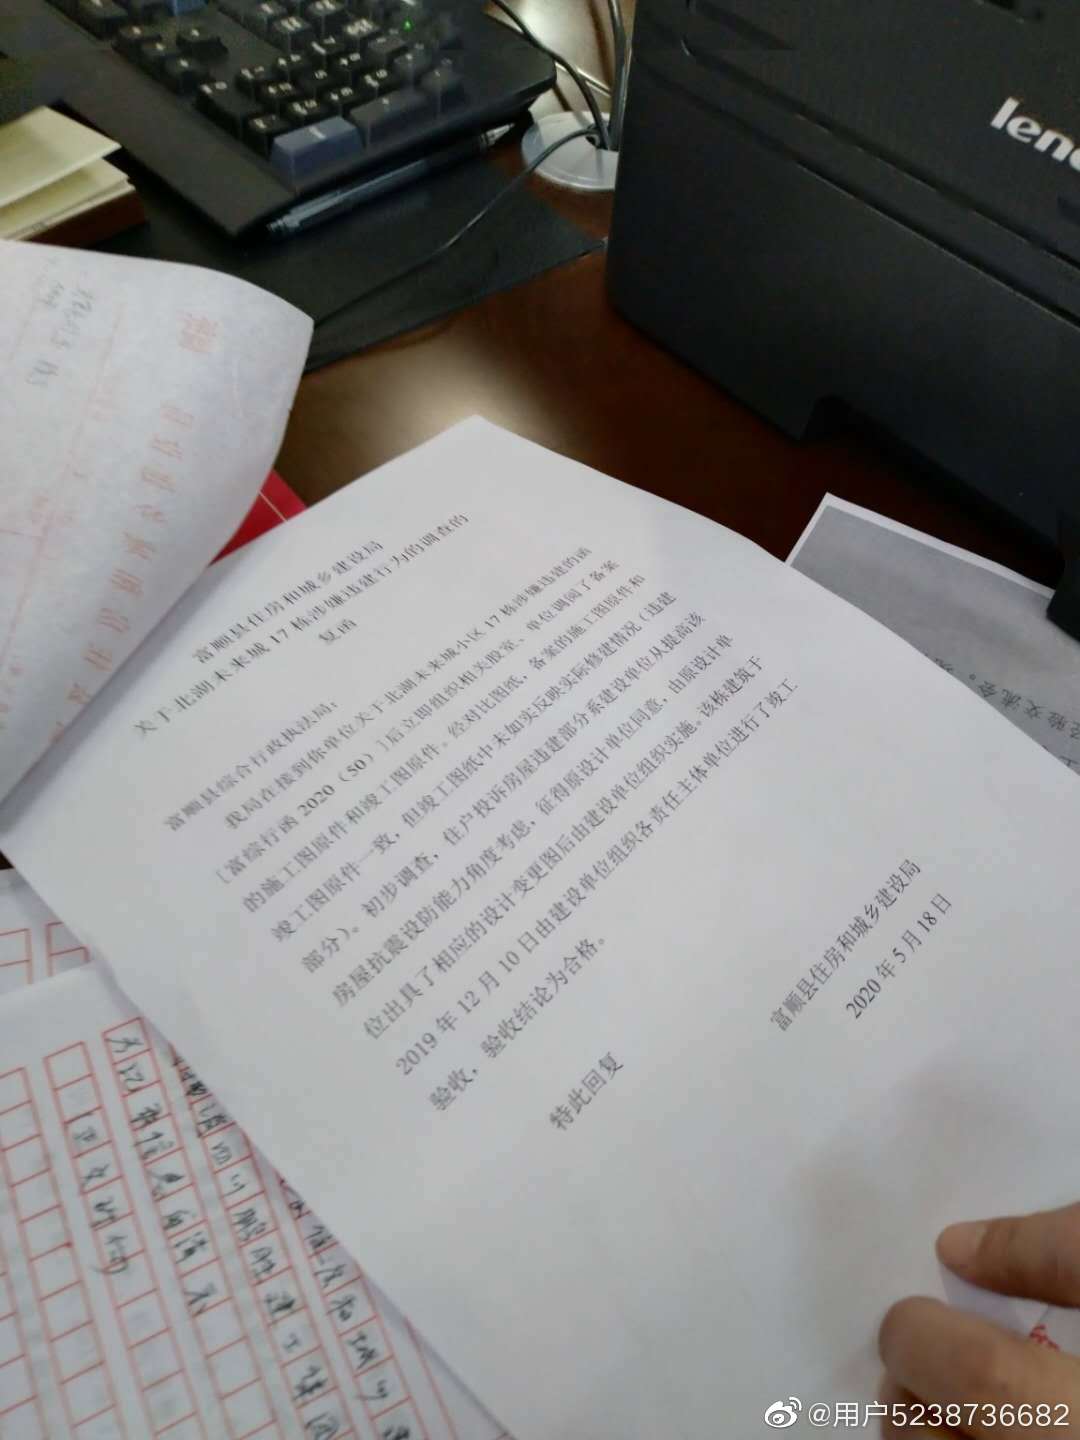 leno
富顺县住房和城乡建设局
关于北湖未来城17栋涉嫌违建行为的调查的
复函
富顺县综合行政执法局：
我局在接到你单位关于北湖未来城小区17栋涉嫌违建的函
［富综行函2020（50）］后立即组织相关股室、单位调阅了备案
的施工图原件和竣工图原件。经对比图纸，备案的施工图原件和
竣工图原件一致，但竣工图纸中未如实反映实际修建情况（违建
部分）。初步调查，住户投诉房屋违建部分系建设单位从提高该
房屋抗震设防能力角度考虑，征得原设计单位同意，由原设计单
位出具了相应的设计变更图后由建设单位组织实施。该栋建筑于
2019年12月10日由建设单位组织各责任主体单位进行了竣工
验收，验收结论为合格。
特此回复
富顺县住房和城乡建设局
2020年5月18日
验交流会。
@用户5238736682